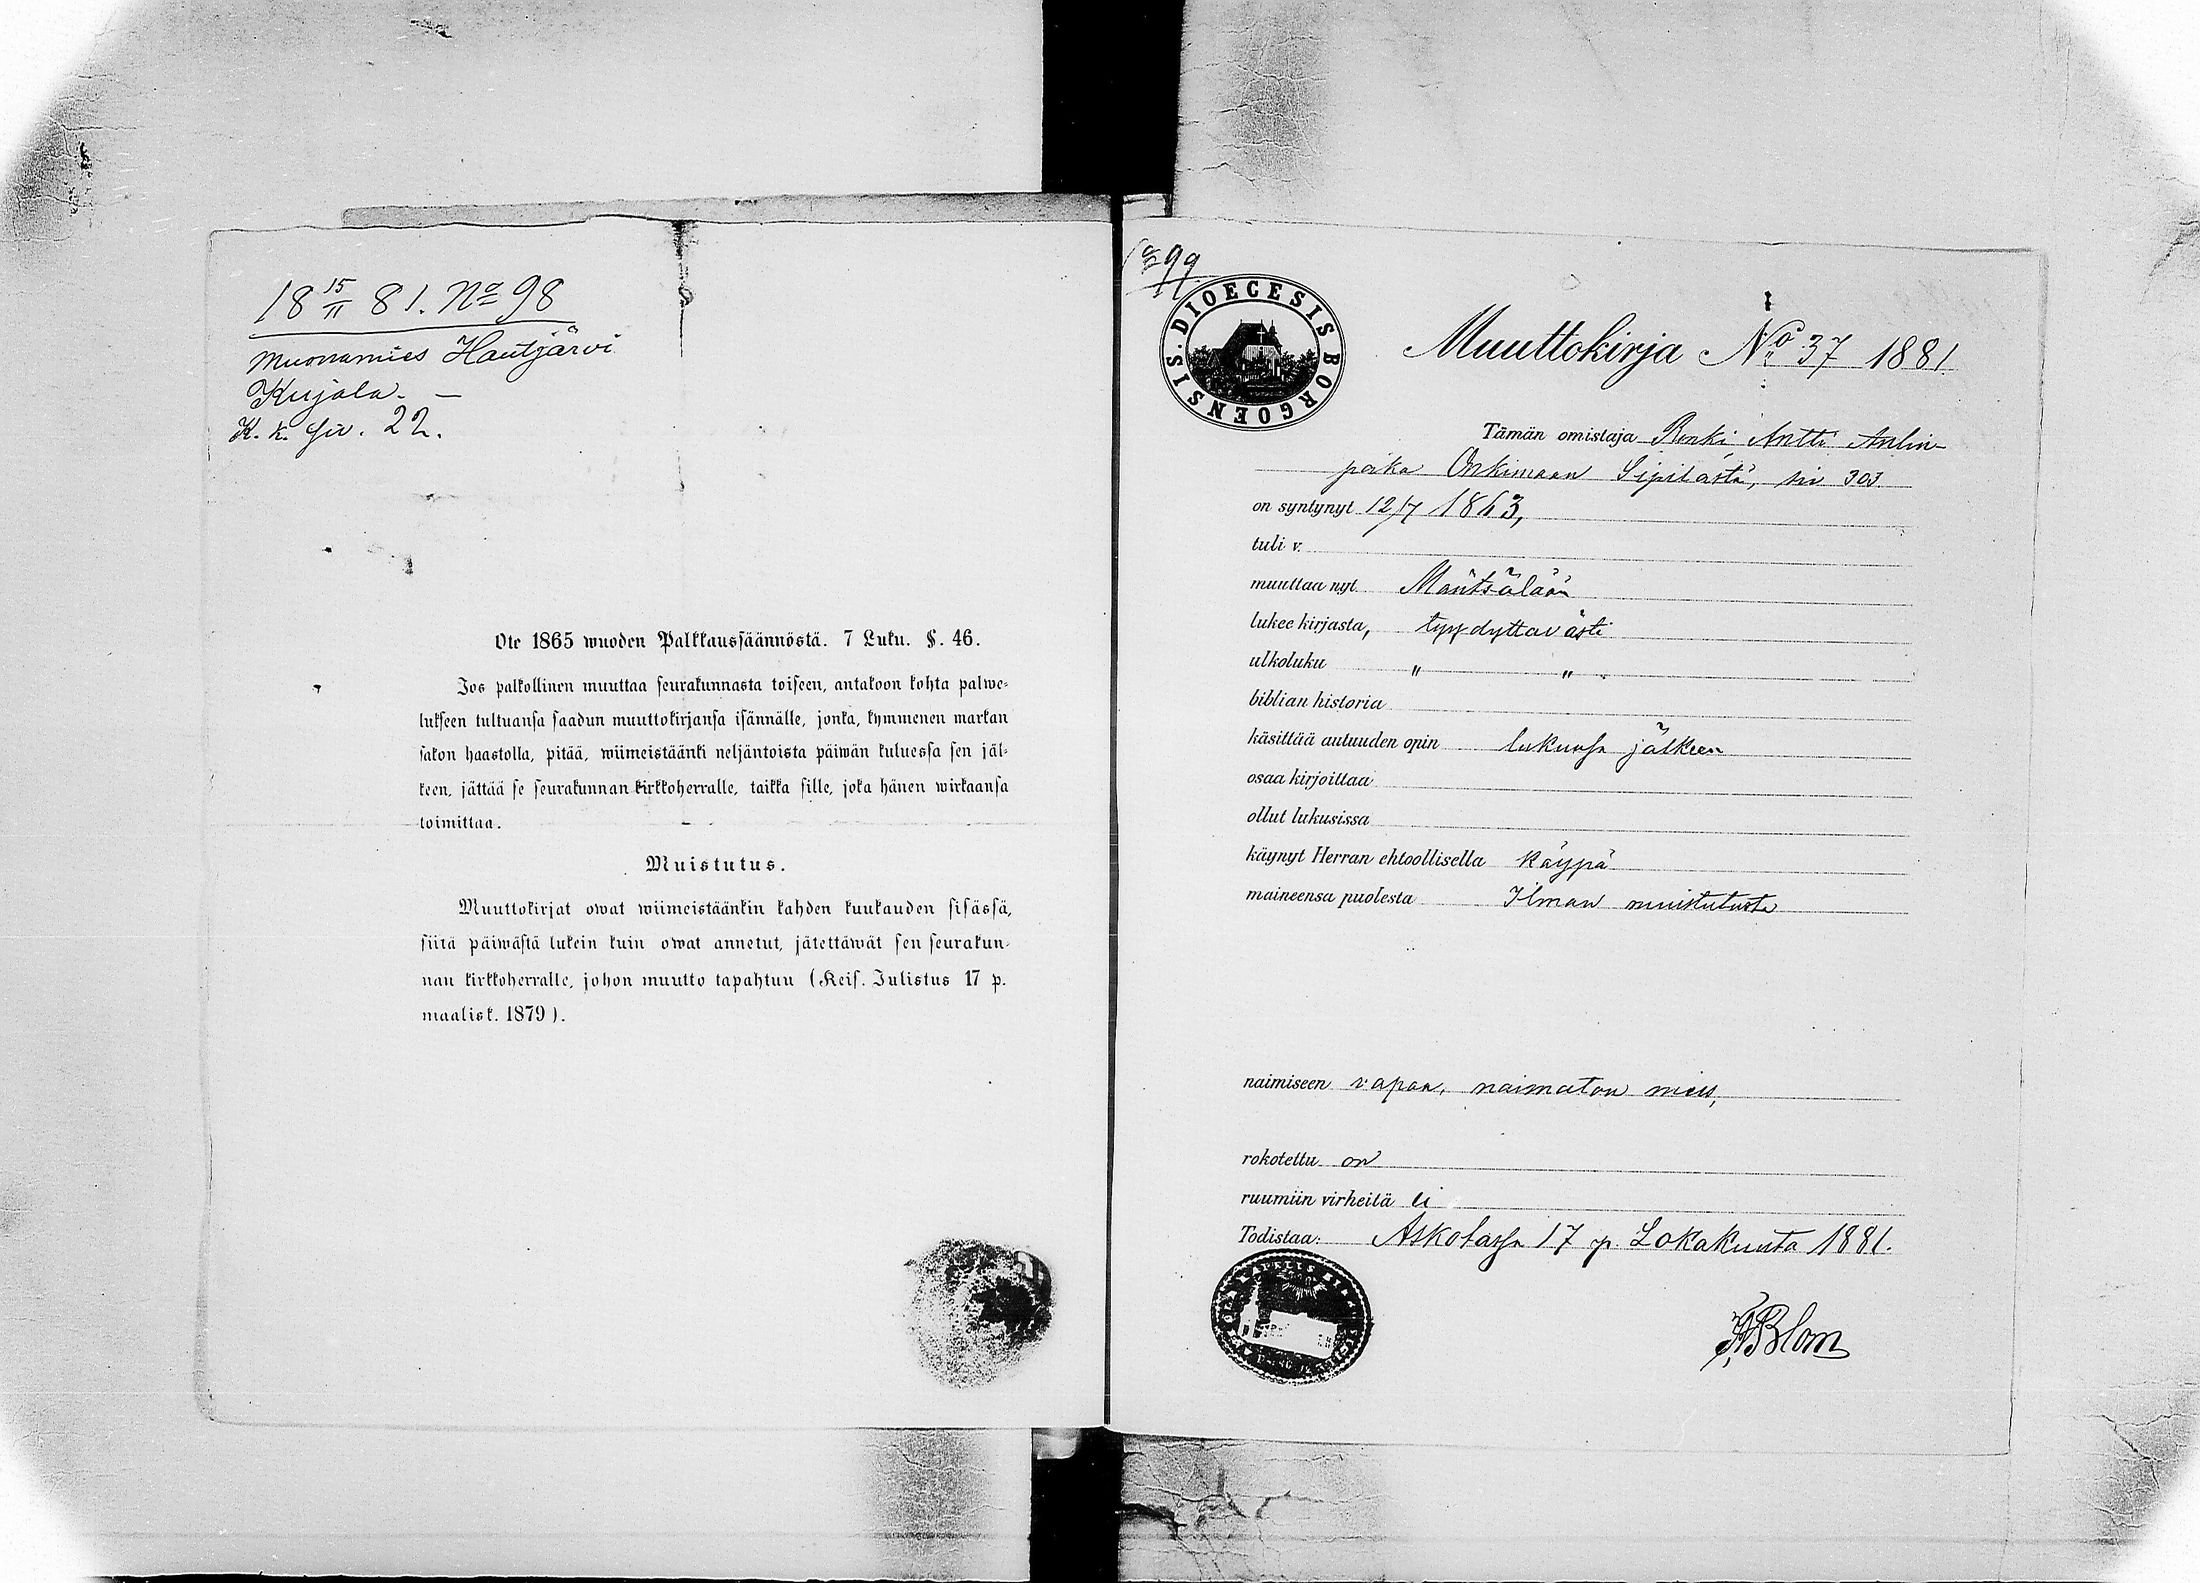 18 15/11 81. No 98
Muonamies Hautjärvi
Kujala. —
K. k. siv. 22.
Ote 1865 wuoden Palkkaussäännöstä. 7 Luku. §. 46.
Jos palkollinen muuttaa seurakunnasta toiseen, antakoon kohta palwe-
lukseen tultuansa saadun muuttokirjansa isännälle, jonka, kymmenen markan
sakon haastolla, pitää, wiimeistäänki neljäntoista päiwän kuluessa sen jäl-
keen, jättää se seurakunnan kirkkoherralle, taikka sille, joka hänen wirkaansa
toimittaa.
Muistutus.
Muuttokirjat owat wiimeistäänkin kahden kuukauden sisässä,
siitä päiwästä lukein kuin owat annetut, jätettäwät sen seurakun-
nan kirkkoherralle, johon muutto tapahtuu (Keis. Julistus 17 p.
maalisk. 1879).
99
DIOECESIS BORGOENSIS.
Muuttokirja No 37 1881.
Tämän omistaja Renki Antti Antin-
poika Onkimaan Sipilästä, siv 303
on syntynyt 12/7 1863,
tuli v.
muuttaa nyt Mäntsälään
lukee kirjasta, tyydyttävästi
ulkoluku " "
biblian historia
käsittää autuuden opin lukunsa jälkeen
osaa kirjoittaa
ollut lukusissa
käynyt Herran ehtoollisella käypä
maineensa puolesta Ilman muistutusta
naimiseen vapaa, naimaton mies,
rokotettu on
ruumiin virheitä ei
Todistaa: Askolassa 17 p. Lokakuuta 1881.
Blom